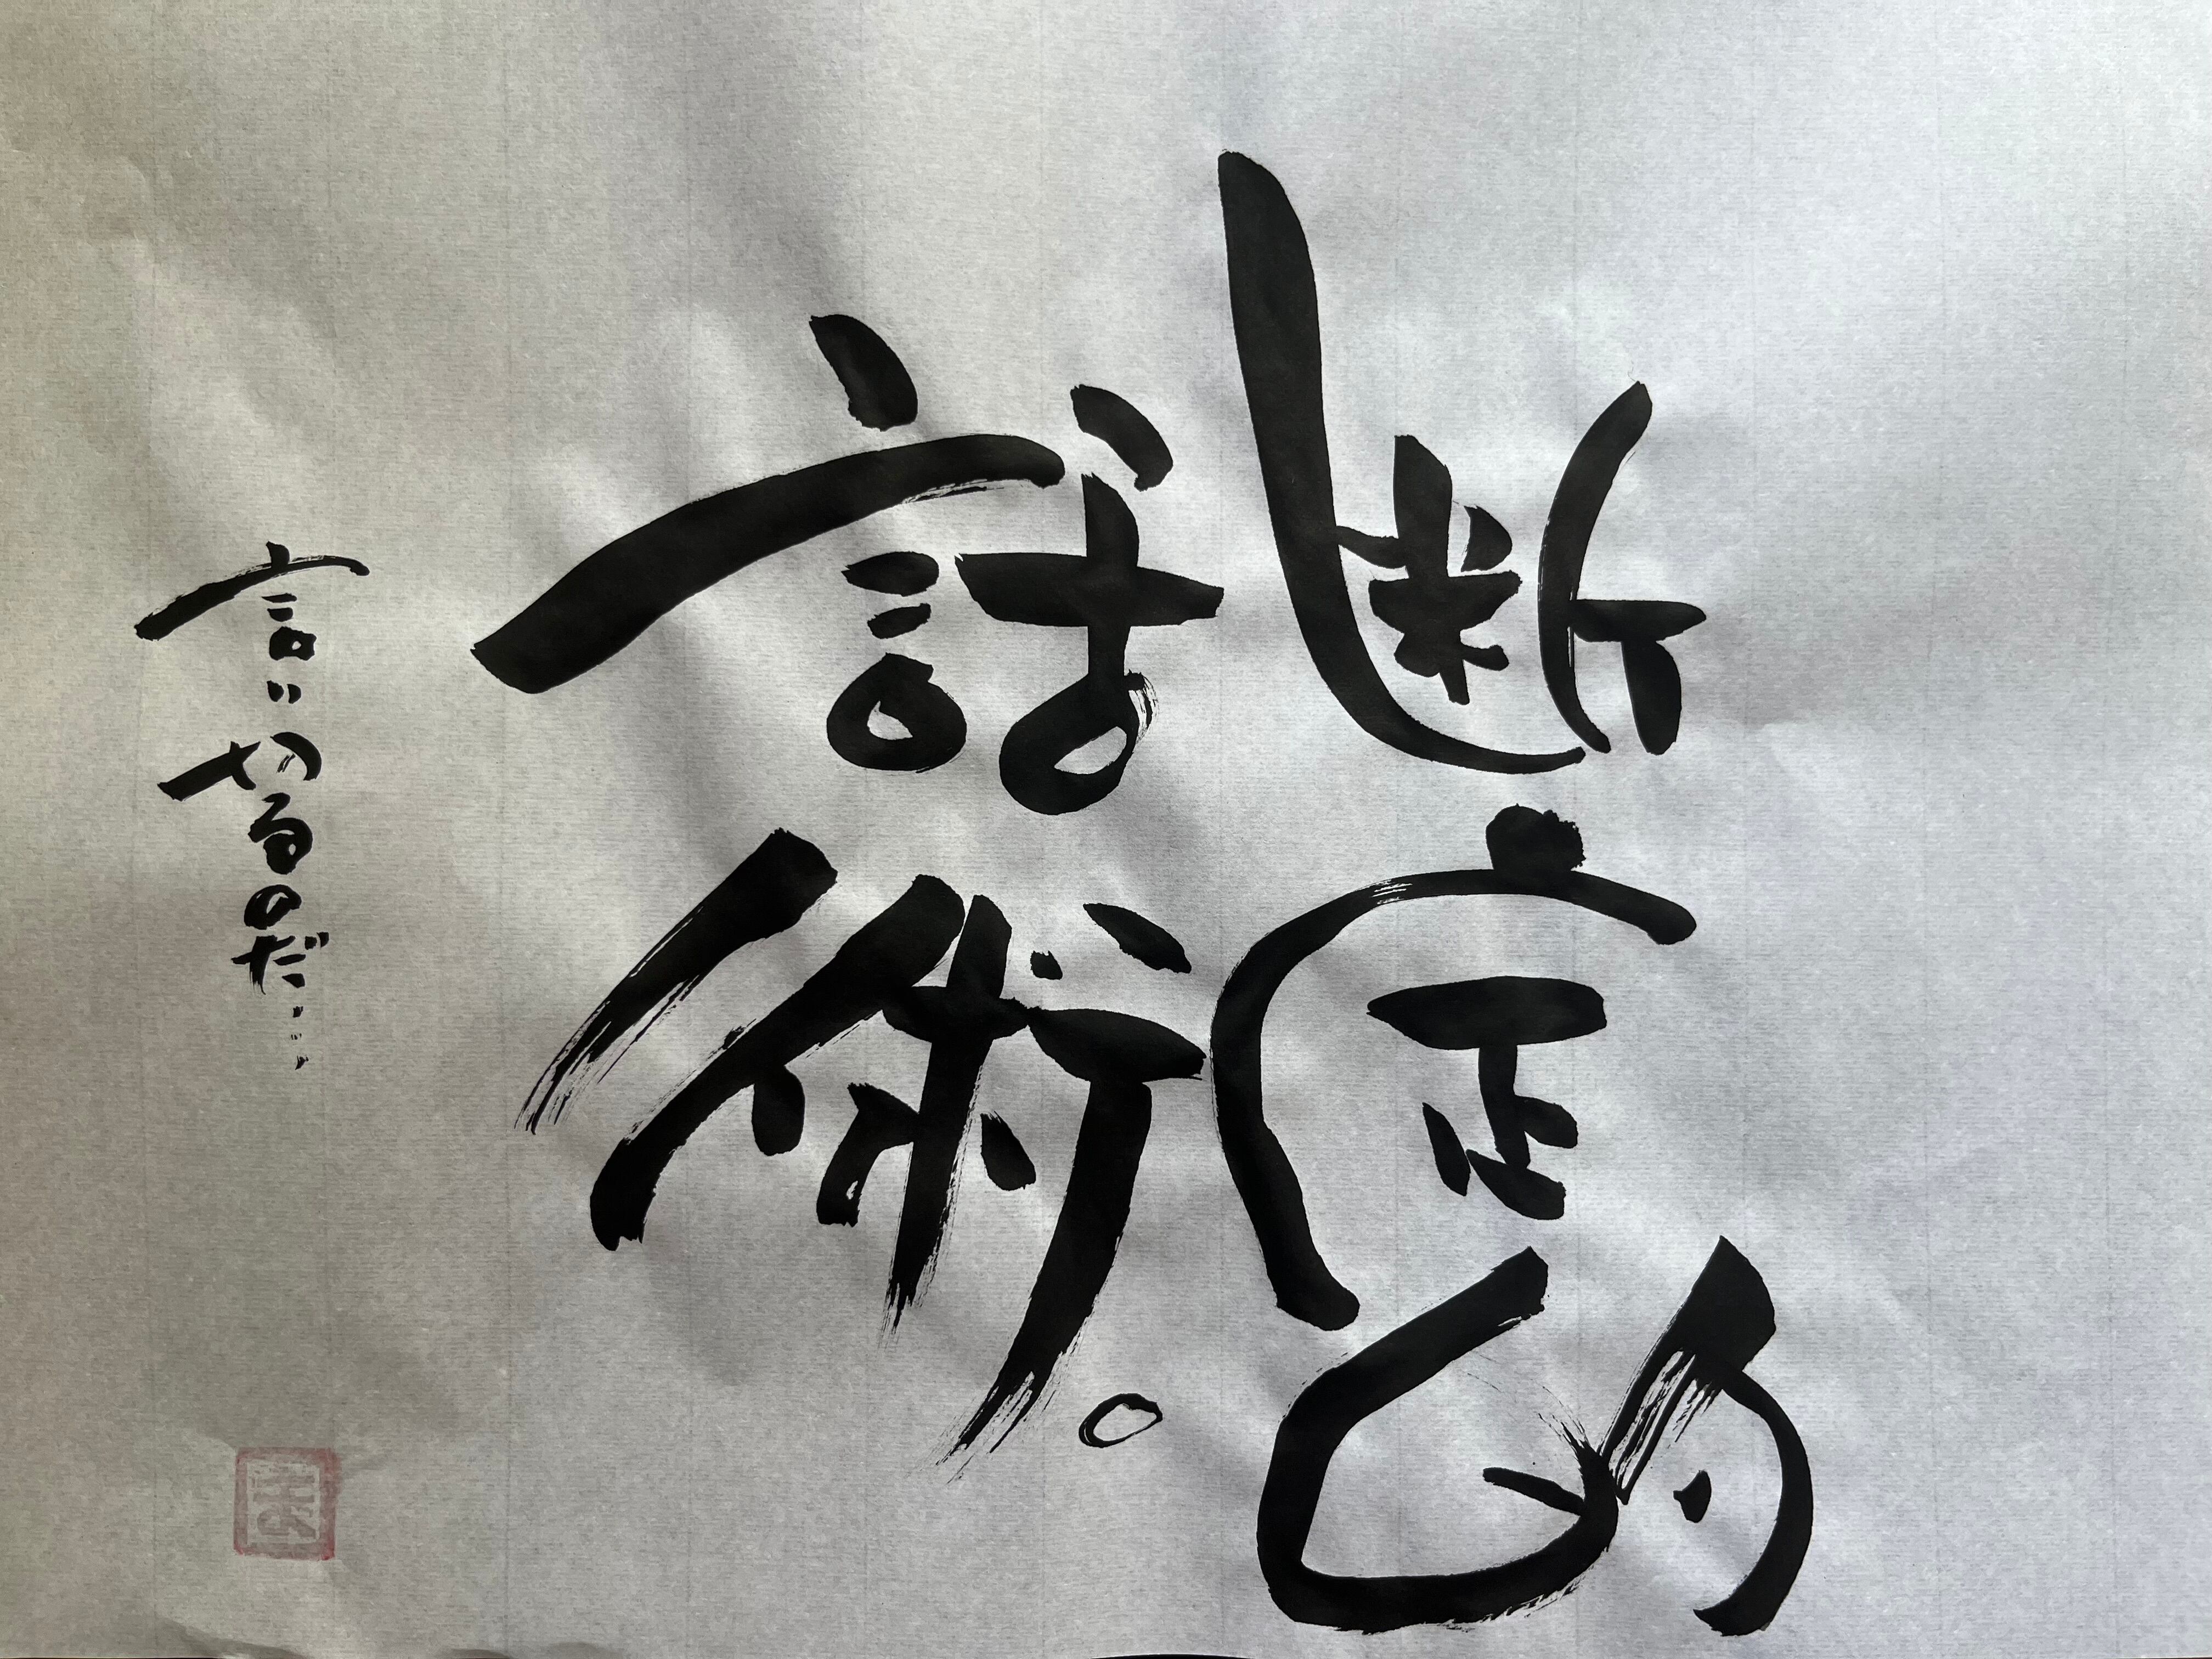 断定的
話術。
言いやるのだ……